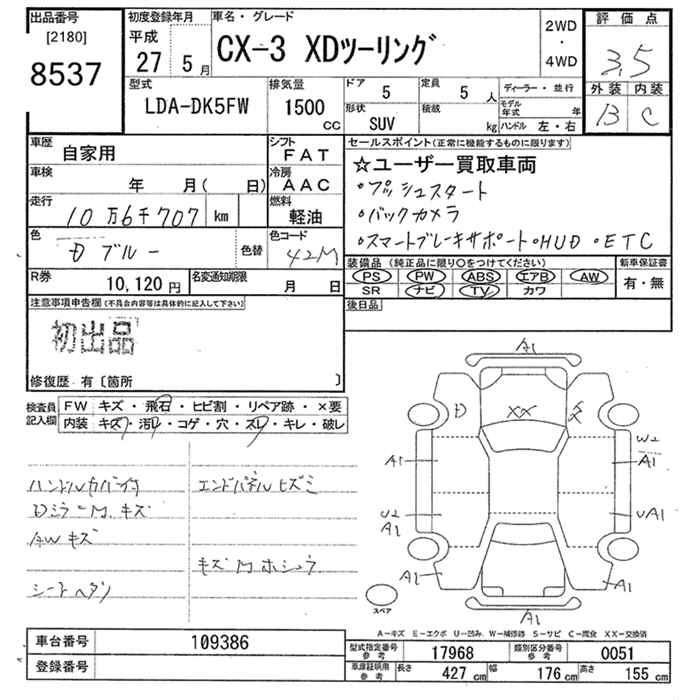 出品番号
[2180]
8537
初度登録年月
平成
27 5月
車名・グレード
CX-3 XDツーリング
2WD
・
4WD
評価点
3.5
外装 内装
B C
型式
LDA-DK5FW
排気量
1500
cc
ドア
5
定員
5 人
形状
SUV
積載
kg
ディーラー・並行
モデル年式 年
ハンドル 左・右
車歴
自家用
シフト
FAT
車検
年 月( 日)
冷房
AAC
走行
10万6千707 km
燃料
軽油
色
Dブルー
色替
色コード
42M
R券
10,120円
名変通知期限
月 日
セールスポイント(正常に機能するものに限ります)
☆ユーザー買取車両
・プッシュスタート
・バックカメラ
・スマートブレーキサポート・HUD・ETC
装備品(純正品に限り○をつけてください)
PS PW ABS エアB AW
SR ナビ TV カワ
新車保証書
有・無
後日品
注意事項申告欄(不具合内容等は具体的に記入して下さい)
初出品
修復歴・有〔箇所 〕
検査員記入欄
FW キズ・飛石・ヒビ割・リペア跡・×要
内装 キズ・汚レ・コゲ・穴・スレ・キレ・破レ
ハンドルカバー付
DミラーM、キズ
AWキズ
シートヘタリ
エンドパネルヒズミ
キズMホシュウ
A1
D
XX
A1
W2
A1
U2
A1
UA1
A1
A1
A1
スペア
A-キズ E-エクボ U-凹み W-補修跡 S-サビ C-腐食 XX-交換済
車台番号 109386
登録番号
型式指定番号 参考 17968
類別区分番号 参考 0051
車庫証明用 参考 長さ 427cm 幅 176cm 高さ 155cm